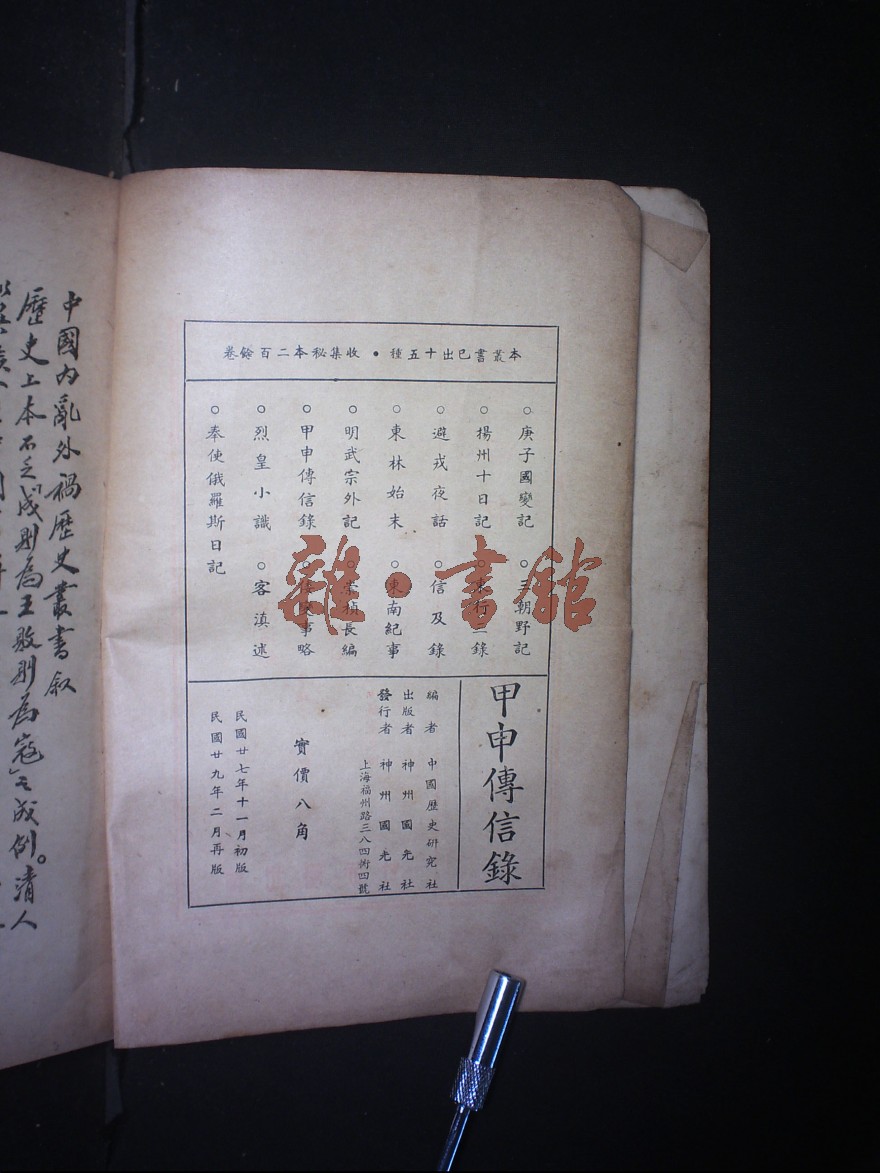 本叢書已出十五種・收集秘本二百餘卷
○庚子國變記 ○三朝野記
○揚州十日記 ○東行三錄
○避戎夜話 ○信及錄
○東林始末 ○東南紀事
○明武宗外記 ○崇禎長編
○甲申傳信錄 ○事略
○烈皇小識 ○客滇述
○奉使俄羅斯日記
甲申傳信錄
編者 中國歷史研究社
出版者 神州國光社
發行者 神州國光社
上海福州路三八四衖四號
實價八角
民國廿七年十一月初版
民國廿九年二月再版
中國內亂外禍歷史叢書叙
歷史上本不乏「成則為王敗則為寇」之成例。清人
雜・書館